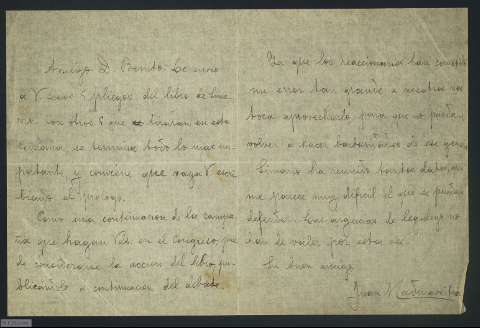 Amigo D. Benito: Le envio
a V. esos 5 pliegos del libro de Sima-
rro. Los otros 8 que se tiraran en esta
semana se termina todo lo mas im-
portante, y conviene que vaya V. escri-
biendo el prologo.
Como una continuacion de la campa-
ña que hagan Vds. en el Congreso, pue-
de considerarse la accion del libro pu-
blicandole a continuacion del debate.
Ya que los reaccionarios han cometido
un error tan grande a nosotros nos
toca aprovecharlo, para que no puedan
volver a hacer barbaridades de ese genero.
Simarro ha reunido tantos datos, que
me parece muy dificil el que se puedan
defender. Las argucias de leguleyo no
van de valer por esta vez.
Su buen amigo
Juan Madinaveitia